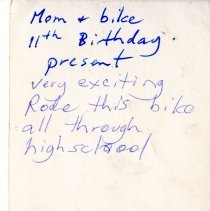 Mom + bike
11th Birthday.
present
very exciting
Rode this bike
all through
highschool